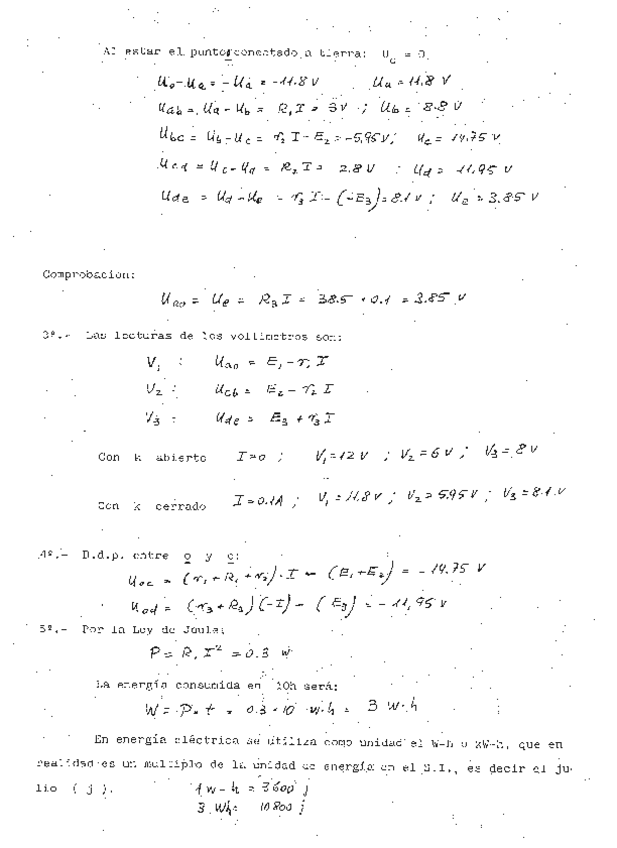 Al estar el punto o conectado a tierra: U_o = 0
U_o - U_a = -U_a = -11.8 V    U_a = 11.8 V
U_ab = U_a - U_b = R_1 I = 3 V ; U_b = 8.8 V
U_bc = U_b - U_c = r_2 I - E_2 = -5,95 V ; U_c = 14.75 V
U_cd = U_c - U_d = R_2 I = 2.8 V ; U_d = 11.95 V
U_de = U_d - U_e = r_3 I - (-E_3) = 8.1 V ; U_e = 3.85 V
Comprobación:
U_eo = U_e = R_3 I = 38.5 · 0.1 = 3.85 V
3º.- Las lecturas de los voltímetros son:
V_1 : U_ao = E_1 - r_1 I
V_2 : U_cb = E_2 - r_2 I
V_3 : U_de = E_3 + r_3 I
Con k abierto I = 0 ; V_1 = 12 V ; V_2 = 6 V ; V_3 = 8 V
Con k cerrado I = 0.1A ; V_1 = 11.8 V ; V_2 = 5.95 V ; V_3 = 8.1 V
4º.- D.d.p. entre o y c:
U_oc = (r_1 + R_1 + r_2) · I - (E_1 + E_2) = -14.75 V
U_od = (r_3 + R_3)(-I) - (E_3) = -11,95 V
5º.- Por la Ley de Joule:
P = R_1 I² = 0.3 W
La energía consumida en 10h será:
W = P · t = 0.3 · 10 W·h = 3 W·h
En energía eléctrica se utiliza como unidad el W-h o kW-h, que en
realidad es un múltiplo de la unidad de energía en el S.I., es decir el ju-
lio ( j ). 1 W-h = 3600 j
3 Wh = 10800 j